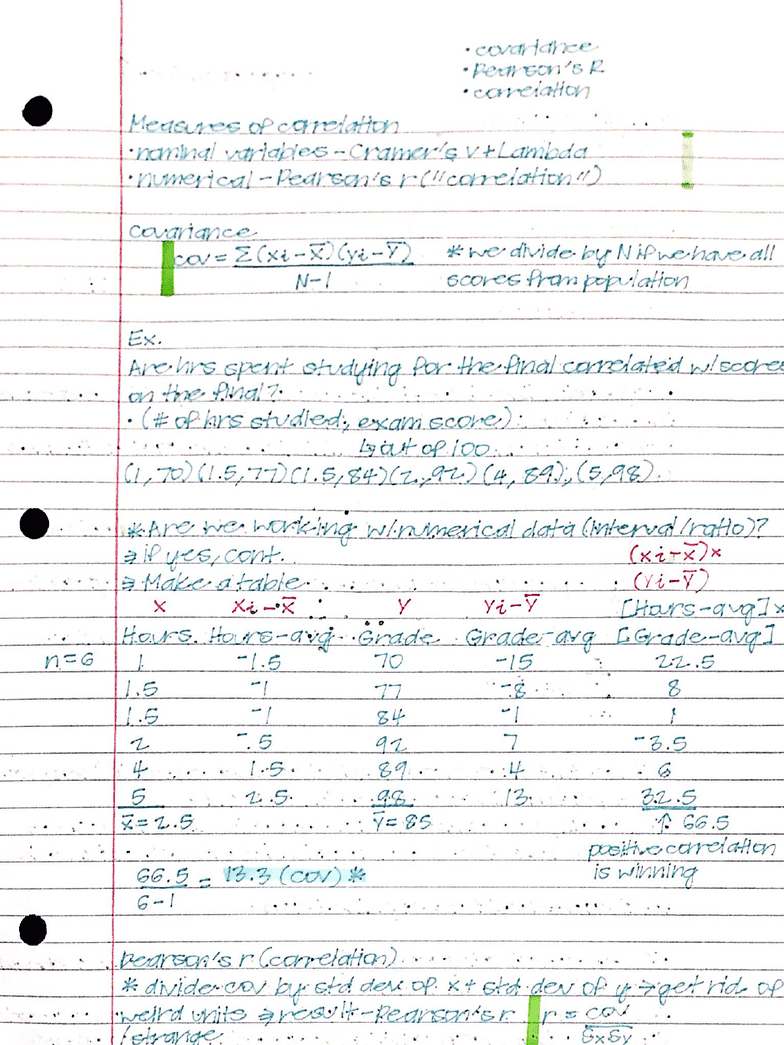 • covariance
• Pearson's R
• correlation
Measures of correlation
• nominal variables – Cramer's V + Lambda
• numerical – Pearson's r ("correlation")
covariance
cov = Σ(xi – x̄)(yi – ȳ) / N – 1 * we divide by N if we have all
scores from population
Ex.
Are hrs spent studying for the final correlated w/ scores
on the final?
• (# of hrs studied, exam score)
↳ out of 100
(1, 70) (1.5, 77) (1.5, 84) (2, 92) (4, 89), (5, 98)
* Are we working w/ numerical data (interval/ratio)?
⇒ if yes, cont. (xi – x̄) x
⇒ Make a table (yi – ȳ)
x xi – x̄ y yi – ȳ [Hours – avg] x
Hours Hours – avg Grade Grade – avg [Grade – avg]
n = 6 1 -1.5 70 -15 22.5
1.5 -1 77 -8 8
1.5 -1 84 -1 1
2 -.5 92 7 -3.5
4 1.5 89 4 6
5 2.5 98 13 32.5
x̄ = 2.5 ȳ = 85 ↑ 66.5
positive correlation
is winning
66.5 / 6 – 1 = 13.3 (cov) *
Pearson's r (correlation)
* divide cov by std dev of x + std dev of y → get rid of
weird units ⇒ result – Pearson's r r = cov / SxSy
/strange